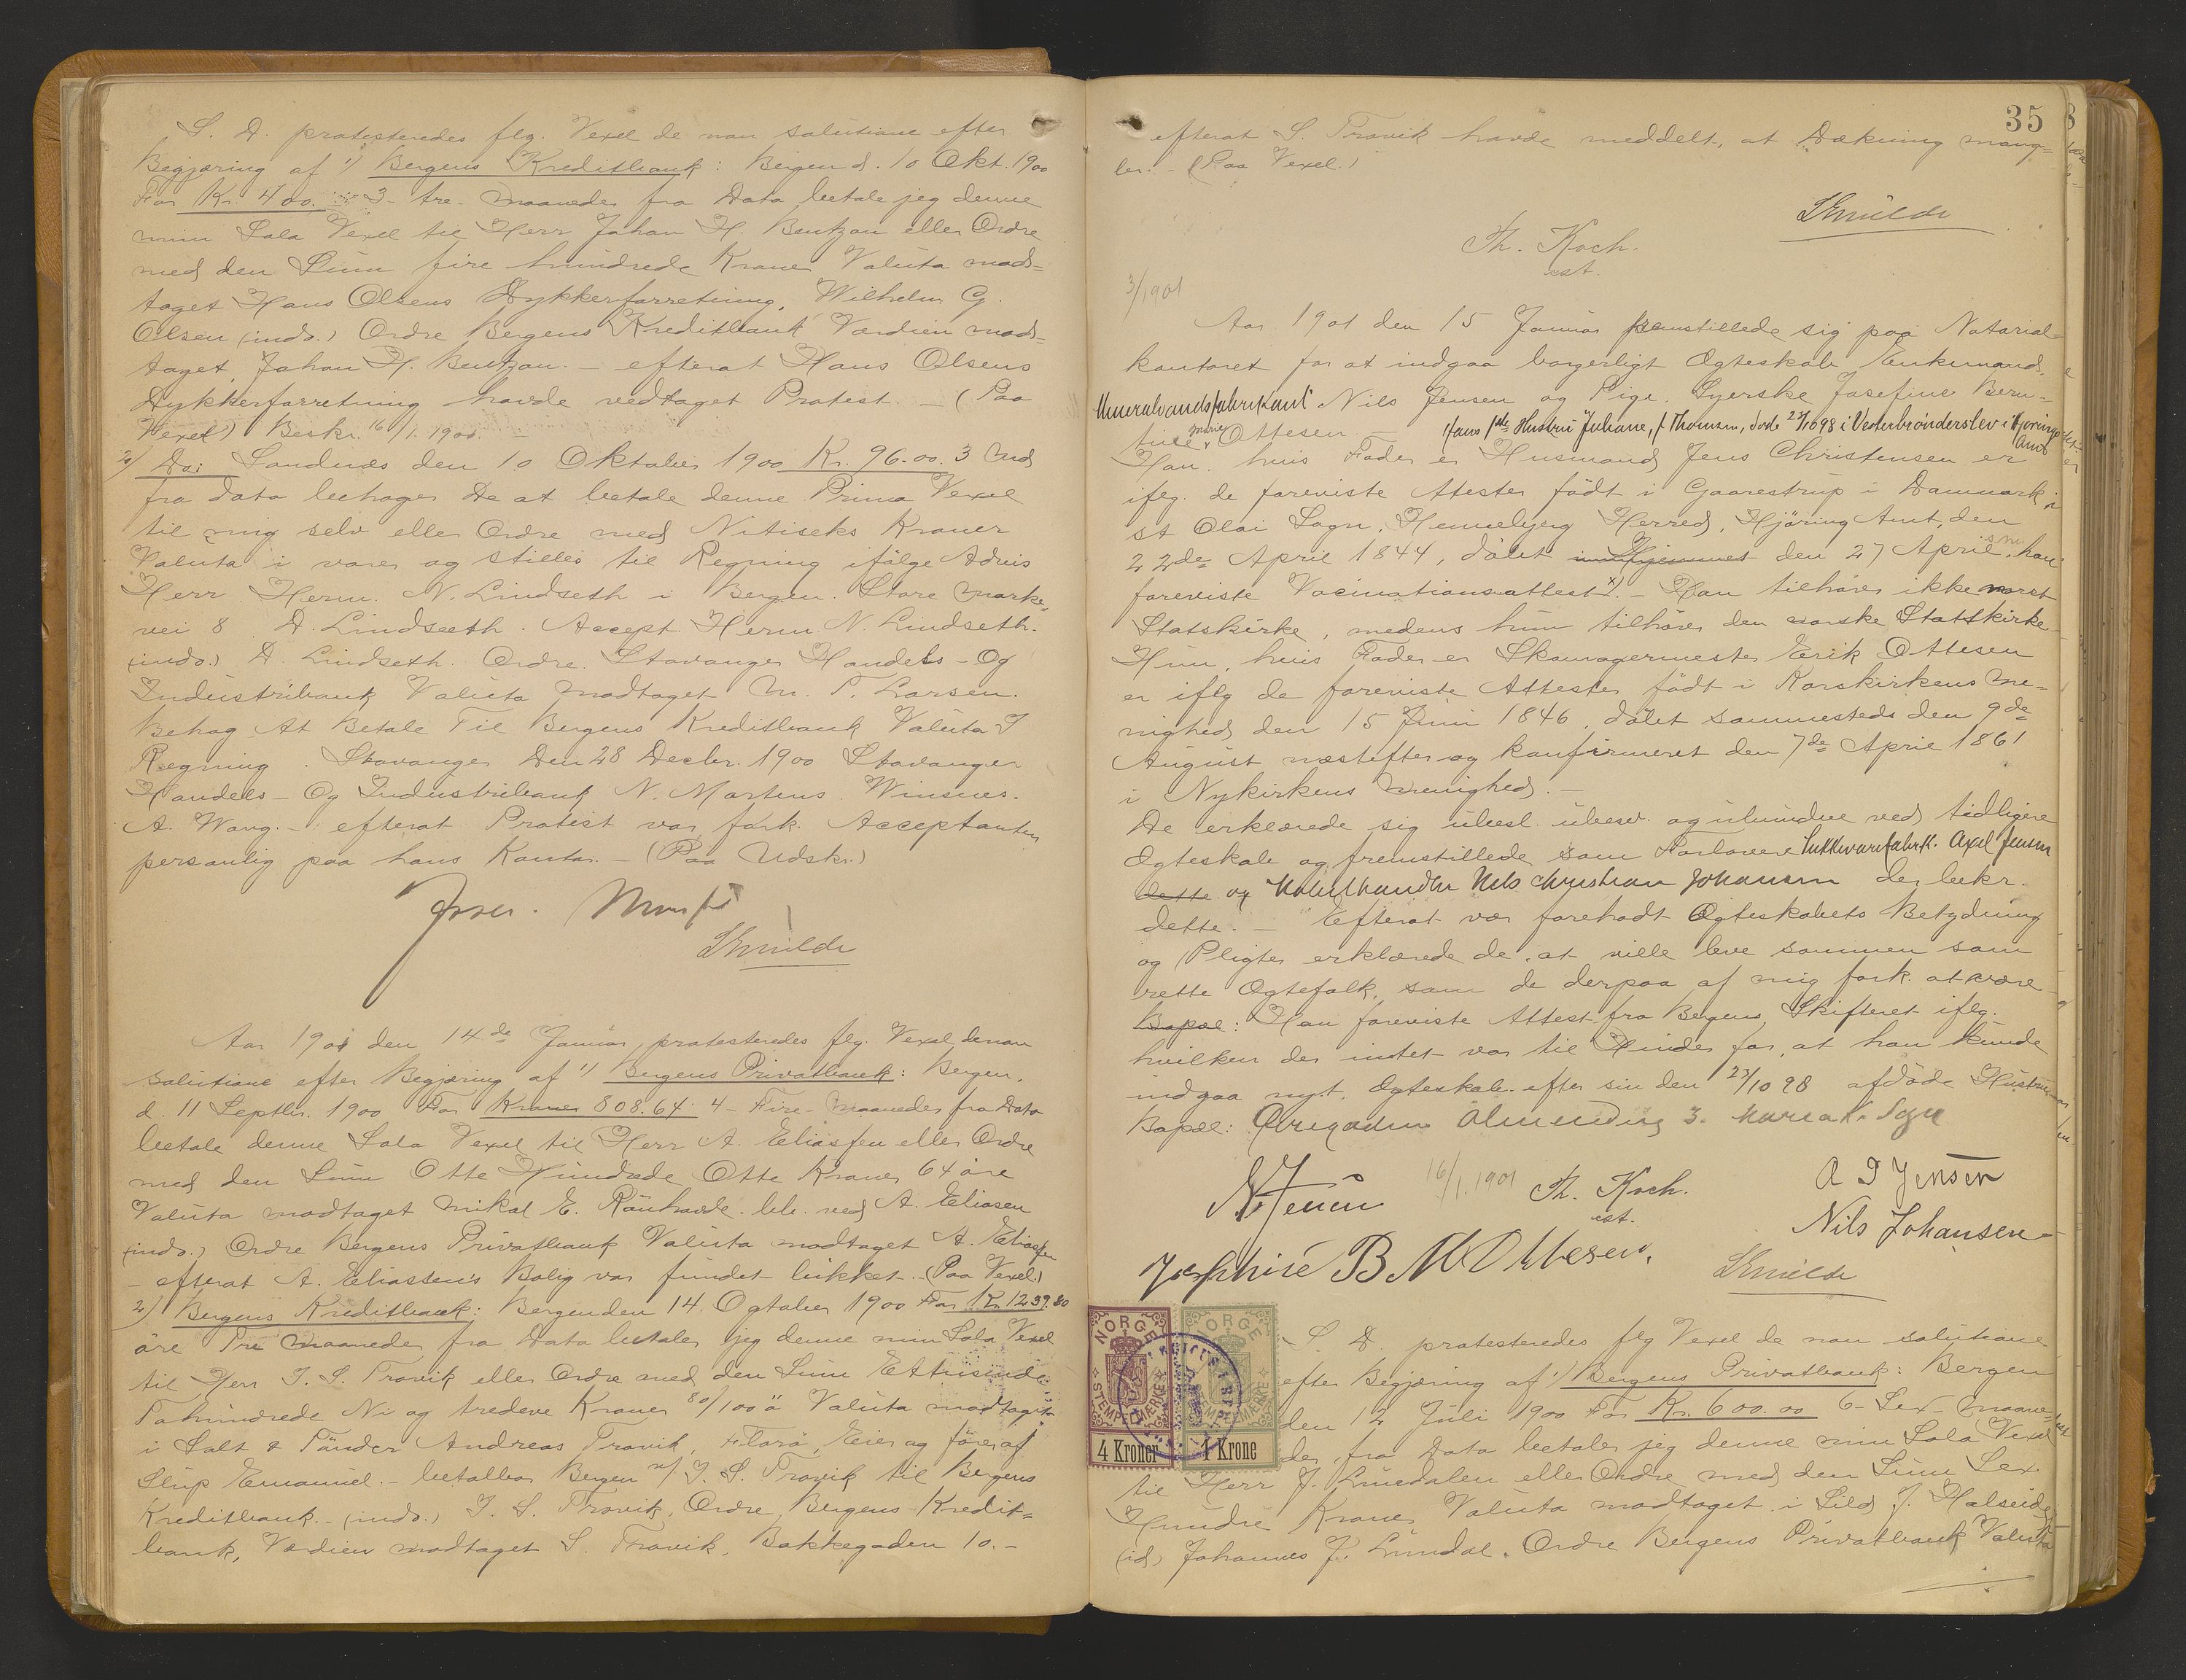 S. D. protesteredes flg. Vexel de non solutione efter
Begjæring af 1) Bergens Kreditbank: Bergen d. 10 Okt. 1900
For Kr. 400. 3 - tre - maaneder fra Data betale jeg denne
min Sola Vexel til Herr Johan H. Bentzon eller Ordre
med den Sum fire hundrede Kroner Valuta mod=
taget Hans Olsens Dykkerforretning, Wilhelm G.
Olsen (indo.) Ordre Bergens Kreditbank Værdien mod=
taget Johan H. Bentzon. - efterat Hans Olsens
Dykkerforretning havde vedtaget Protest. - (Paa
Vexel) Beskr. 16/1. 1900. -
2) Do: Sandnæs den 10 Oktober 1900 Kr. 96.00. 3 Md
fra dato behager De at betale denne Prima Vexel
til mig selv eller Ordre med Nitiseks Kroner
Valuta i varer og stilles til Regning ifølge Advis
Herr Herm. N. Lindseth i Bergen. Store Marke=
vei 8 D. Lindseth. Accept Herm N. Lindseth.
(indo.) D Lindseth. Ordre. Stavanger Handels - Og
Industribank Valuta Modtaget M. T. Larsen.
Behag At Betale Til Bergens Kreditbank Valuta I
Regning. Stavanger Den 28 Decbr. 1900 Stavanger
Handels - Og Industribank N. Martens. Winsnes.
A. Wang. - efterat Protest var fork. Acceptanten
personlig paa hans Kontor. - (Paa Udskr.)
Skuilde
Aar 1901 den 14de Januar protesteredes flg. Vexel de non
solutione efter Begjæring af 1) Bergens Privatbank: Bergen,
d. 11 Septbr. 1900 For Kroner 808.64. 4 - Fire - Maaneder fra Dato
betale denne Sola Vexel til Herr A. Eliassen eller Ordre
med den Sum Otte Hundrede Otte Kroner 64 øre
Valuta modtaget Mikal E. Rønhovde. bet. ved A. Eliasen
(indo.) Ordre Bergens Privatbank Valuta modtaget A. Eliassen
- efterat A. Eliassen's Bolig var fundet lukket. - (Paa Vexel.)
2) Bergens Kreditbank: Bergen den 14. Ogtober 1900 For Kr. 1239.80
øre Tre Maaneder fra Dato betaler jeg denne min Sola Vexel
til Herr J. S. Trovik eller Ordre med den Sum Ettusinde
Tohundrede Ni og tredeve Kroner 80/100 ø Valuta modtaget
i Salt & Tønder Andreas Trovik, Florø, Eier og fører af
Slup Emanuel. - betalbar Bergen v/ J. S. Trovik til Bergens
Kreditbank. - (indo.) J. S. Trovik, Ordre Bergens Kredit=
bank, Værdien modtaget S. Trovik, Bakkegaden 10. -
35
efterat S. Trovik havde meddelt, at Dækning mang=
ler. - (Paa Vexel.)
Skuilde
Th. Koch.
cst.
3/1901
Aar 1901 den 15 Januar fremstillede sig paa Notarial=
kontoret for at indgaa borgerligt Ægteskab Enkemand,
Mineralvandsfabrikant Nils Jensen og Pige. Syerske Josefine Bern=
tine Marie Ottesen - Hans 1ste Hustru Juliane, f. Thomsen, døde 23/10 98 i Vesterbrønderslev i Hjøring Amt
Han, hvis Fader er Husmand Jens Christensen er
iflg. de foreviste Attester født i Gaarestrup i Danmark i
st Olai Sogn, Hennebjerg Herred, Hjøring Amt, den
22de April 1844, døbt i Hjemmet den 27 April s. m. han
foreviste Vacinationsattest x). - Han tilhører ikke norsk
Statskirke, medens hun tilhører den norske Statskirke
Hun, hvis Fader er Skomagermester Erik Ottesen
er iflg de foreviste Attester født i Korskirkens Me=
nighed den 15 Juni 1846, døbt sammesteds den 9de
August næstefter og konfirmeret den 7de April 1861
i Nykirkens Menighed. -
De erklærede sig ubesl. ubesv. og uhindre ved tidligere
Ægteskab og fremstillede som Forlovere Axel Jensen
dette og Nils Christian Johansen der bekr.
dette. - Efterat var foreholdt Ægteskabets Betydning
og Pligter erklærede de, at ville leve sammen som
rette Ægtefolk, som de derpaa af mig fork. at være
Bopæl: Han foreviste Attest fra Bergens Skifteret iflg.
hvilken der intet var til Hinder for, at han kunde
indgaa nyt Ægteskab efter sin den 23/10 98 afdøde Hustru
Bopæl: Almending 3. Maria K. Sogn
N Jensen 16/1. 1901 Th. Koch. A J Jensen
cst. Nils Johansen
Josephine B M Ottesen. Skuilde
NORGE STEMPELMÆRKE 4 Kroner
NORGE STEMPELMÆRKE 1 Krone
S. D. protesteredes flg Vexel de non solutione
efter Begjæring af 1) Bergens Privatbank: Bergen
den 12 Juli 1900 For Kr. 600.00 6 - Sex - Maane=
der fra Dato betaler jeg denne min Sola Vexel
til Herr J. Lundalen eller Ordre med den Sum Sex
Hundre Kroner Valuta modtaget i Sild J. Halseide
(id) Johannes J. Lundal. Ordre Bergens Privatbank Valuta